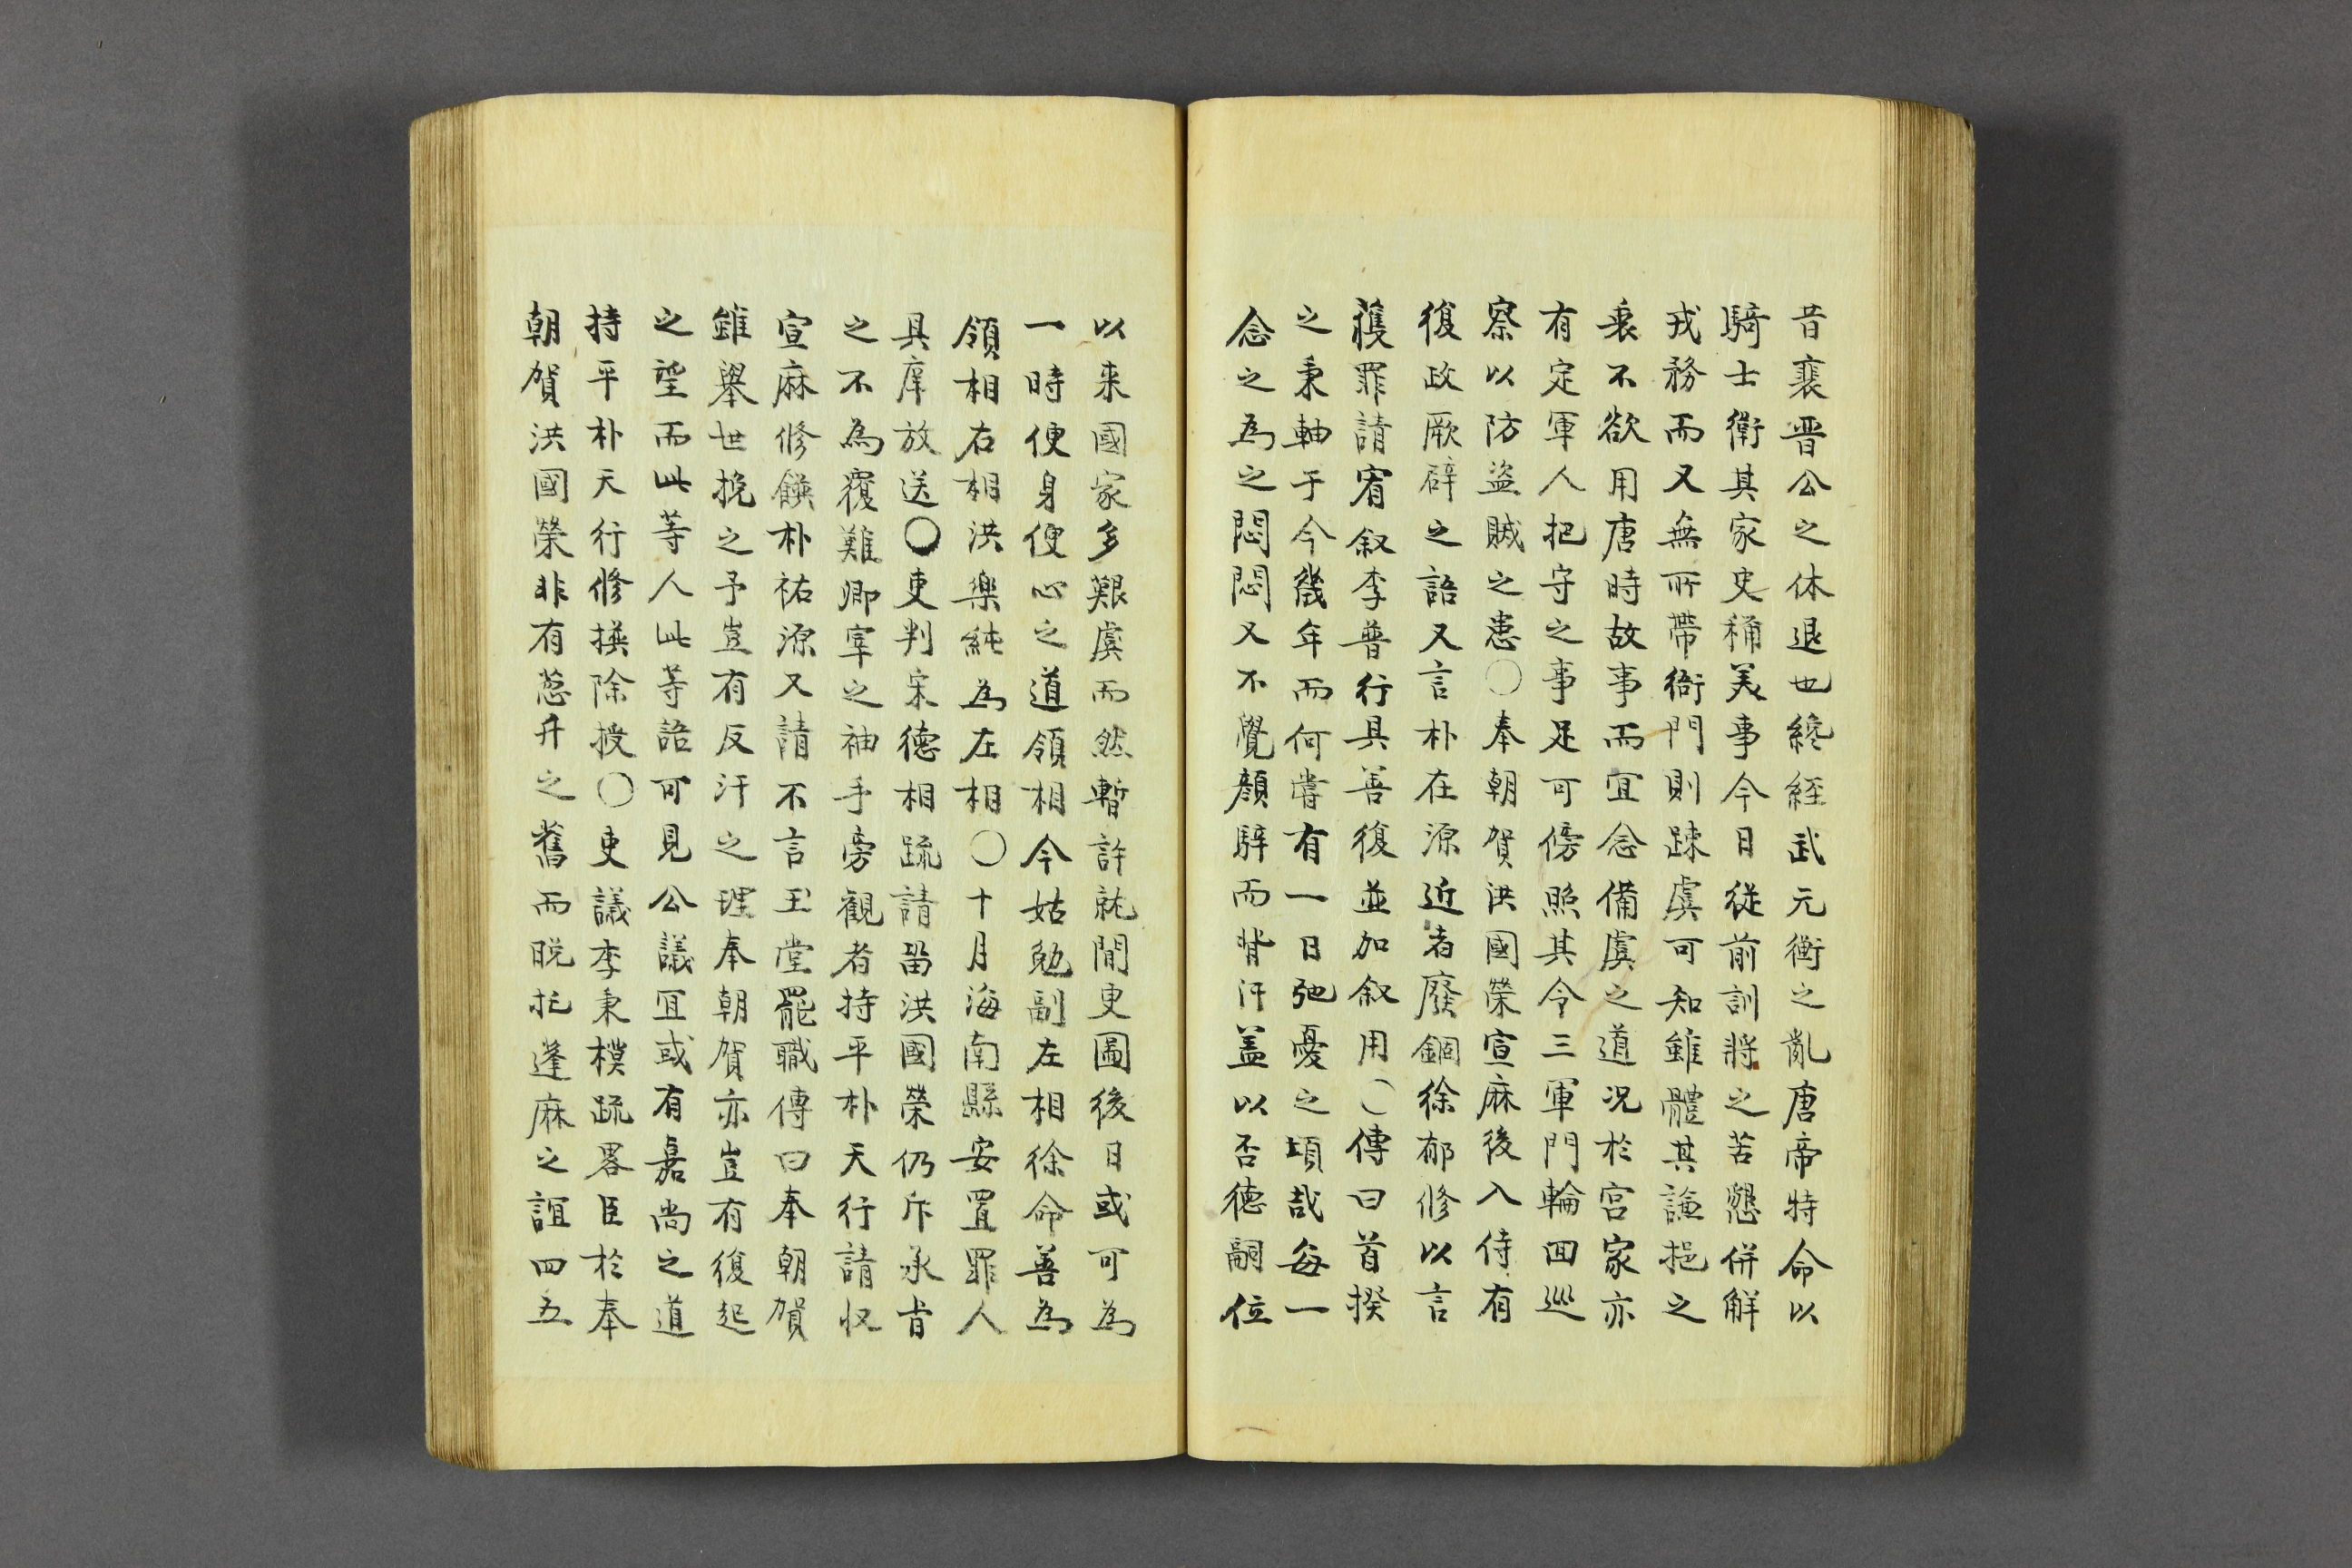 昔裵晋公之休退也纔経武元衡之亂唐帝特命以
騎士衛其家史稱美事今日従前訓將之苦懇併解
戎務而又無所帶衙門則踈虞可知雖體其謙挹之
衷不欲用唐時故事而宜念備虞之道况於宮家亦
有定軍人把守之事足可傍照其令三軍門輪回巡
察以防盗賊之患○奉朝賀洪國榮宣麻後入侍有
復政厥辟之語又言朴在源近者廢錮徐郁修以言
獲罪請宥叙李普行具善復並加叙用○傳曰首揆
之秉軸于今幾年而何嘗有一日弛憂之頃哉每一
念之為之悶悶又不覺顔騂而背汗盖以否德嗣位
以来國家多艱虞而然暫許就閒更圖後日或可為
一時便身便心之道領相今姑勉副左相徐命善為
領相右相洪樂純為左相○十月海南縣安置罪人
具庠放送○吏判宋德相䟽請留洪國榮仍斥承旨
之不為覆難卿宰之袖手旁観者持平朴天行請収
宣麻修饌朴祐源又請不言玉堂罷職傳曰奉朝賀
雖舉世挽之予豈有反汗之理奉朝賀亦豈有復起
之望而此等人此等語可見公議宜或有嘉尚之道
持平朴天行修撰除授○吏議李秉模疏畧臣於奉
朝賀洪國榮非有葱升之舊而晩托蓬麻之誼四五